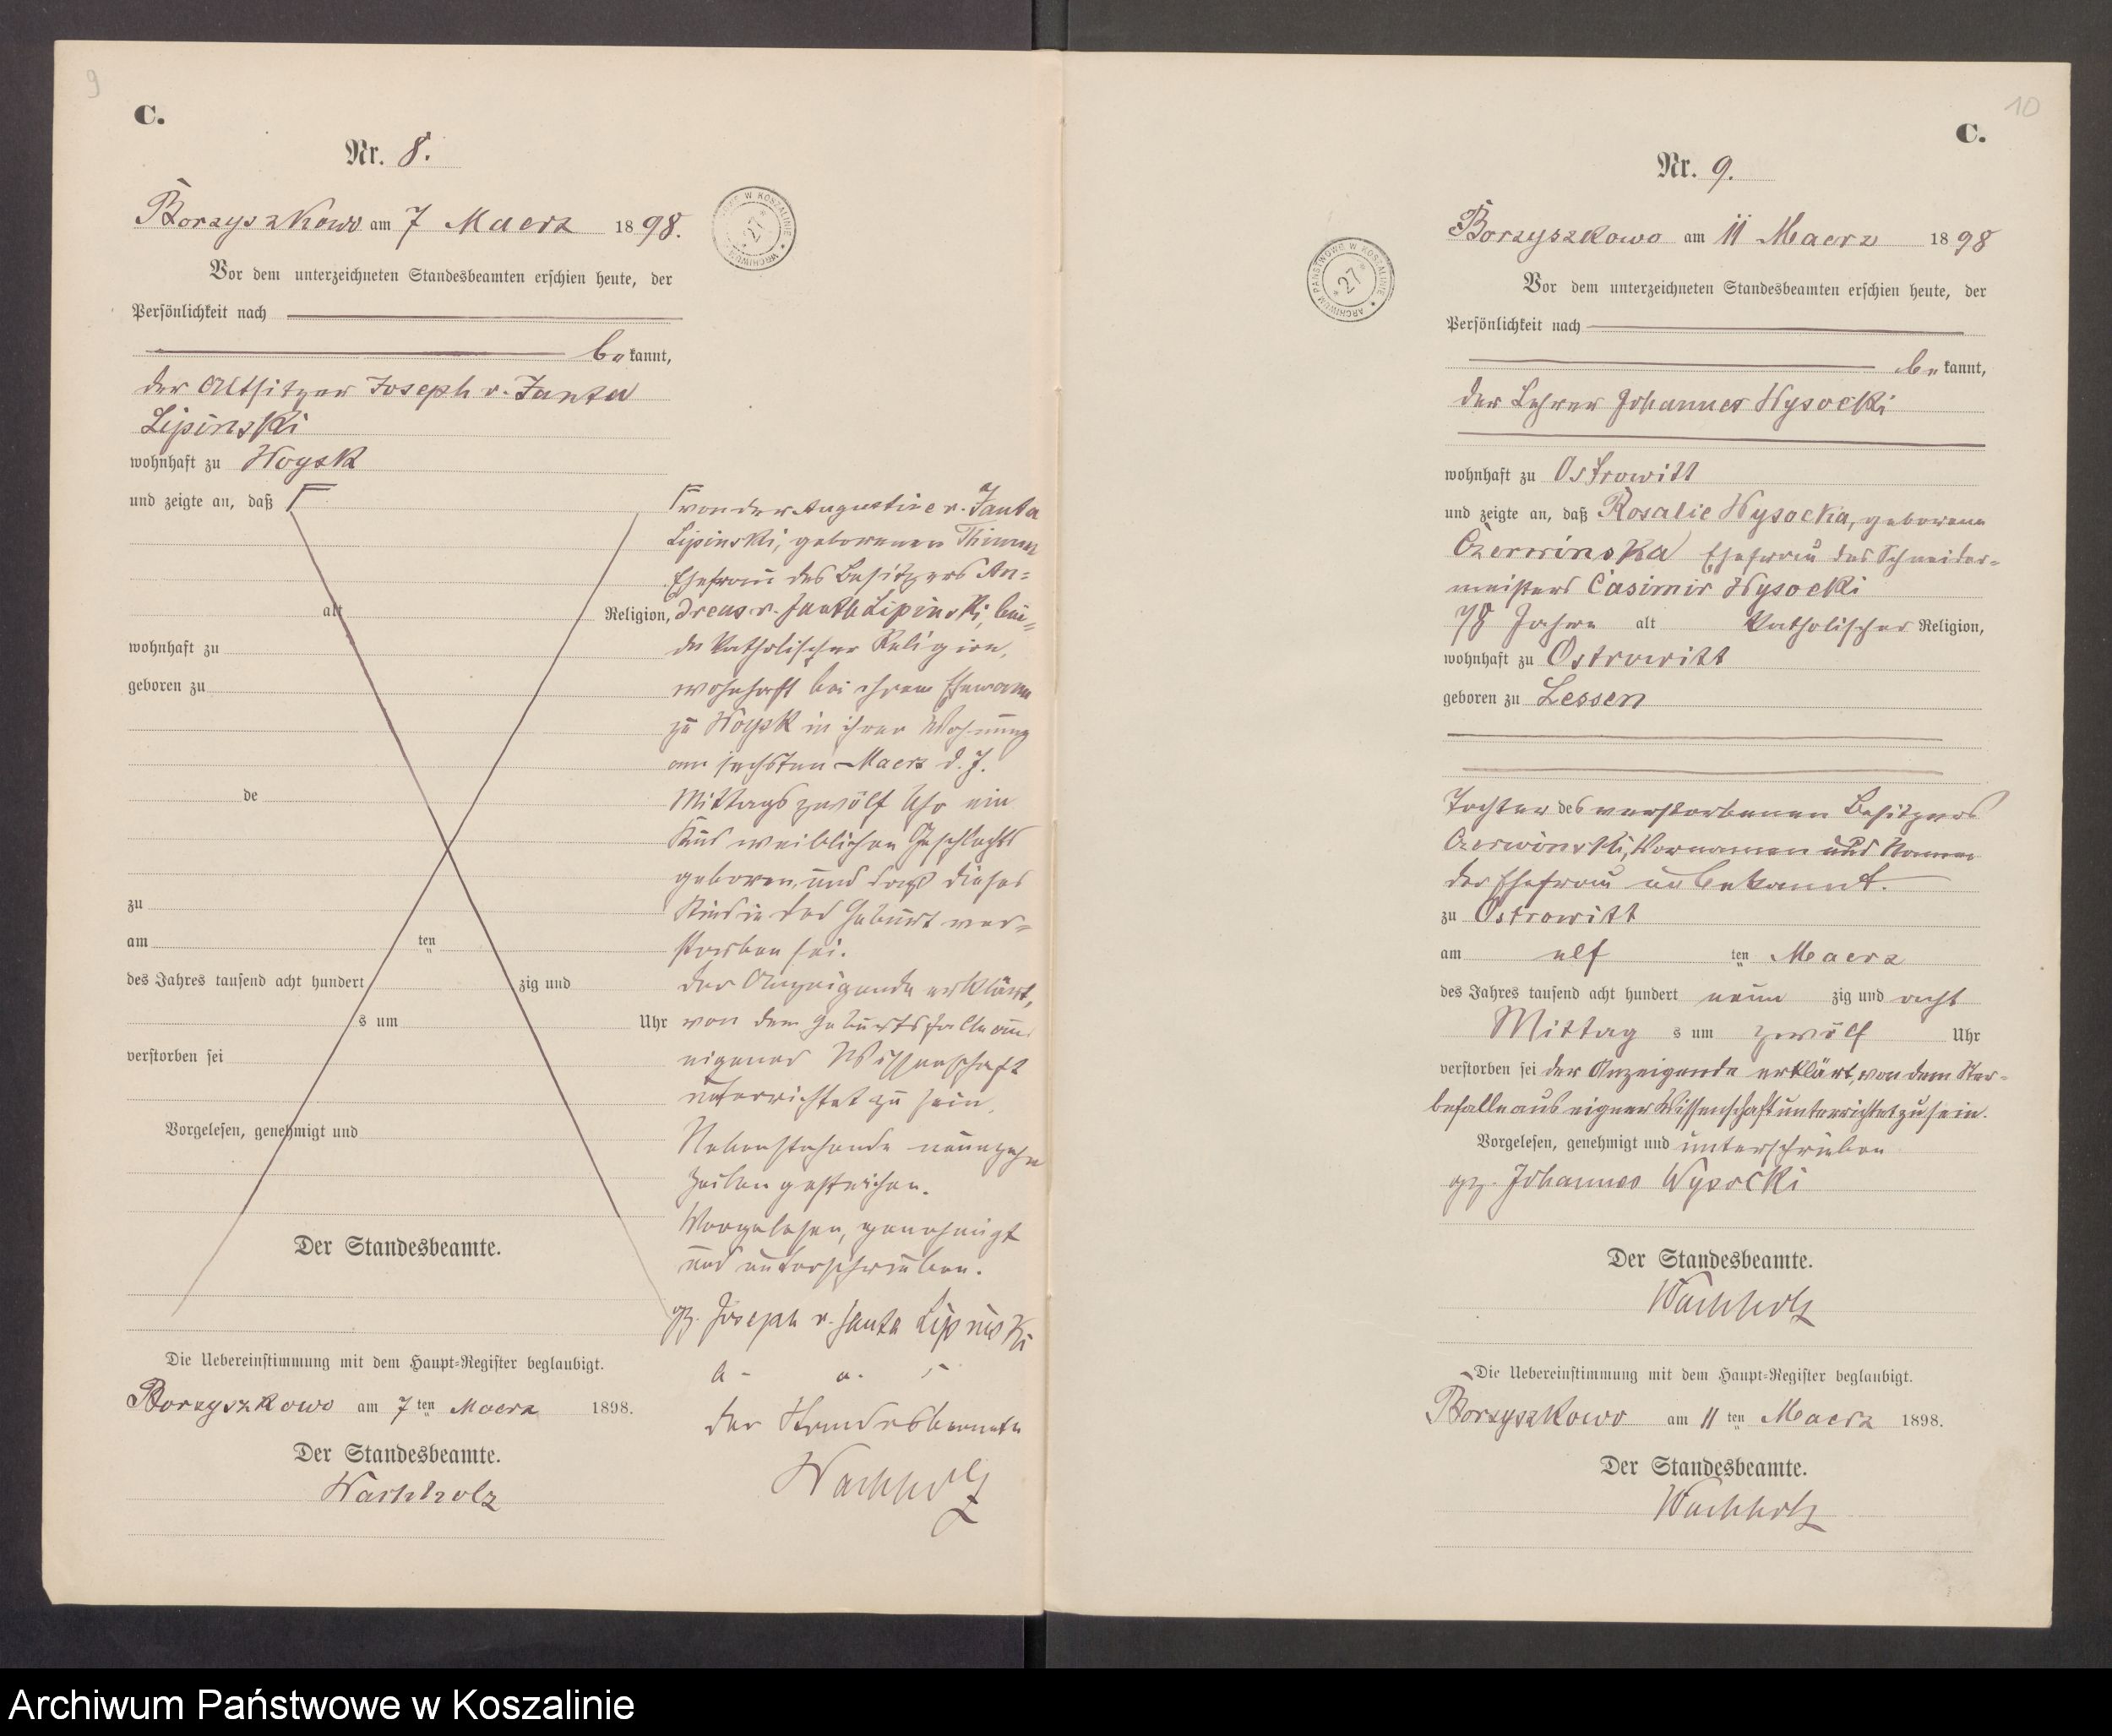 9
C.
Nr. 8.
Borzyszkowo am 7 Maerz 1898.
Vor dem unterzeichneten Standesbeamten erschien heute, der
Persönlichkeit nach
bekannt,
der Altsitzer Joseph v. Janta
Lipinski
wohnhaft zu Woysk
und zeigte an, daß
alt Religion,
wohnhaft zu
geboren zu
de
zu
am ten
des Jahres tausend acht hundert zig und
s um Uhr
verstorben sei
Vorgelesen, genehmigt und
Der Standesbeamte.
Die Uebereinstimmung mit dem Haupt-Register beglaubigt.
Borzyszkowo am 7 ten Maerz 1898.
Der Standesbeamte.
Wachholz
ARCHIWUM W KOSZALINIE
27
von der Augustine v. Janta
Lipinski, geborenen
Ehefrau des Besitzers An=
dreas v. Janta Lipinski, bei=
de katholischer Religion,
wohnhaft bei ihrem Ehemann
zu Woysk in ihrer Wohnung
am sechsten Maerz d. J.
Mittags zwölf Uhr ein
Kind weiblichen Geschlechts
geboren, und daß dieses
Kind in der Geburt ver=
storben sei.
Der Anzeigende erklärt,
von dem Geburtsfalle aus
eigener Wissenschaft
unterrichtet zu sein.
Nebenstehende neunzehn
Zeilen gestrichen.
Vorgelesen, genehmigt
und unterschrieben.
gz. Joseph v. Janta Lipinski
Der Standesbeamte
Wachholz
10
C.
Nr. 9.
ARCHIWUM PAŃSTWOWE W KOSZALINIE
27
Borzyszkowo am 11 Maerz 1898
Vor dem unterzeichneten Standesbeamten erschien heute, der
Persönlichkeit nach
bekannt,
der Lehrer Johannes Wysocki
wohnhaft zu Ostrowitt
und zeigte an, daß Rosalie Wysocka, geborene
Czerwinska Ehefrau des Schneider=
meisters Casimir Wysocki
78 Jahre alt katholischer Religion,
wohnhaft zu Ostrowitt
geboren zu Lessen
Tochter des verstorbenen Besitzers
Czerwinski, Vornamen und Namen
der Ehefrau unbekannt.
zu Ostrowitt
am elf ten Maerz
des Jahres tausend acht hundert neun zig und acht
Mittag s um zwölf Uhr
verstorben sei der Anzeigende erklärt, von dem Ster=
befalle aus eigner Wissenschaft unterrichtet zu sein.
Vorgelesen, genehmigt und unterschrieben
gz. Johannes Wysocki
Der Standesbeamte.
Wachholz
Die Uebereinstimmung mit dem Haupt-Register beglaubigt.
Borzyszkowo am 11 ten Maerz 1898.
Der Standesbeamte.
Wachholz
Archiwum Państwowe w Koszalinie